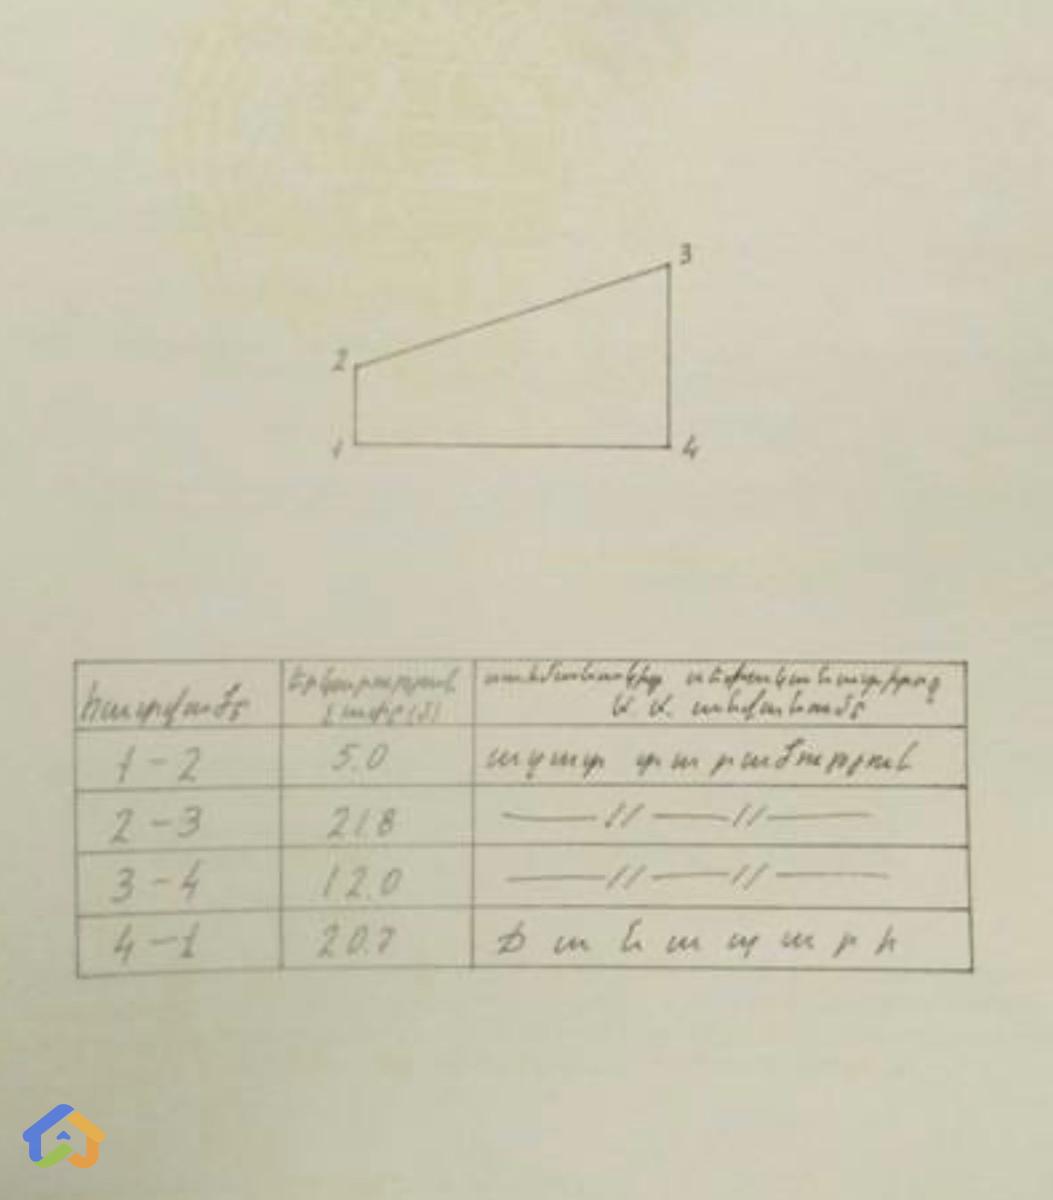 3
2
1
4
հատված երկարություն սահմանակից սեփականատիրոջ
(մ) Ա. Ա. անվանում
1 - 2 5.0 ազատ տարածություն
2 - 3 21.8 — // — // —
3 - 4 12.0 — // — // —
4 - 1 20.7 Ճանապարհ